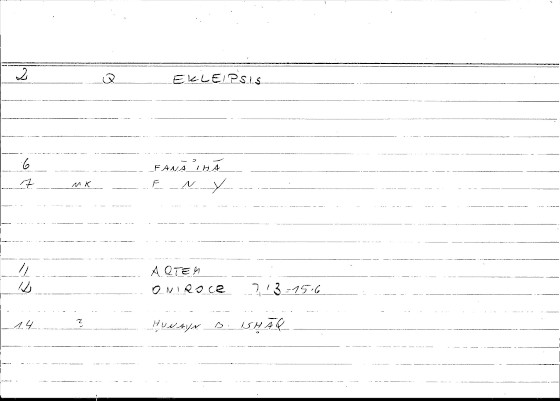 2 Q EKLEIPSIS
6 FANĀʾIHĀ
7 MK F N Y
11 ARTEM
12 ONIROCR 713-15.6
14 ? ḤUNAYN B. ISḤĀQ